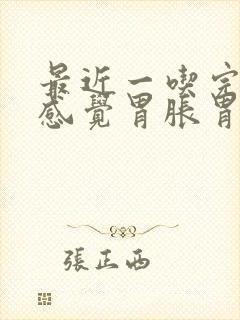 最近一喫完
感覺胃脹胃
張正西